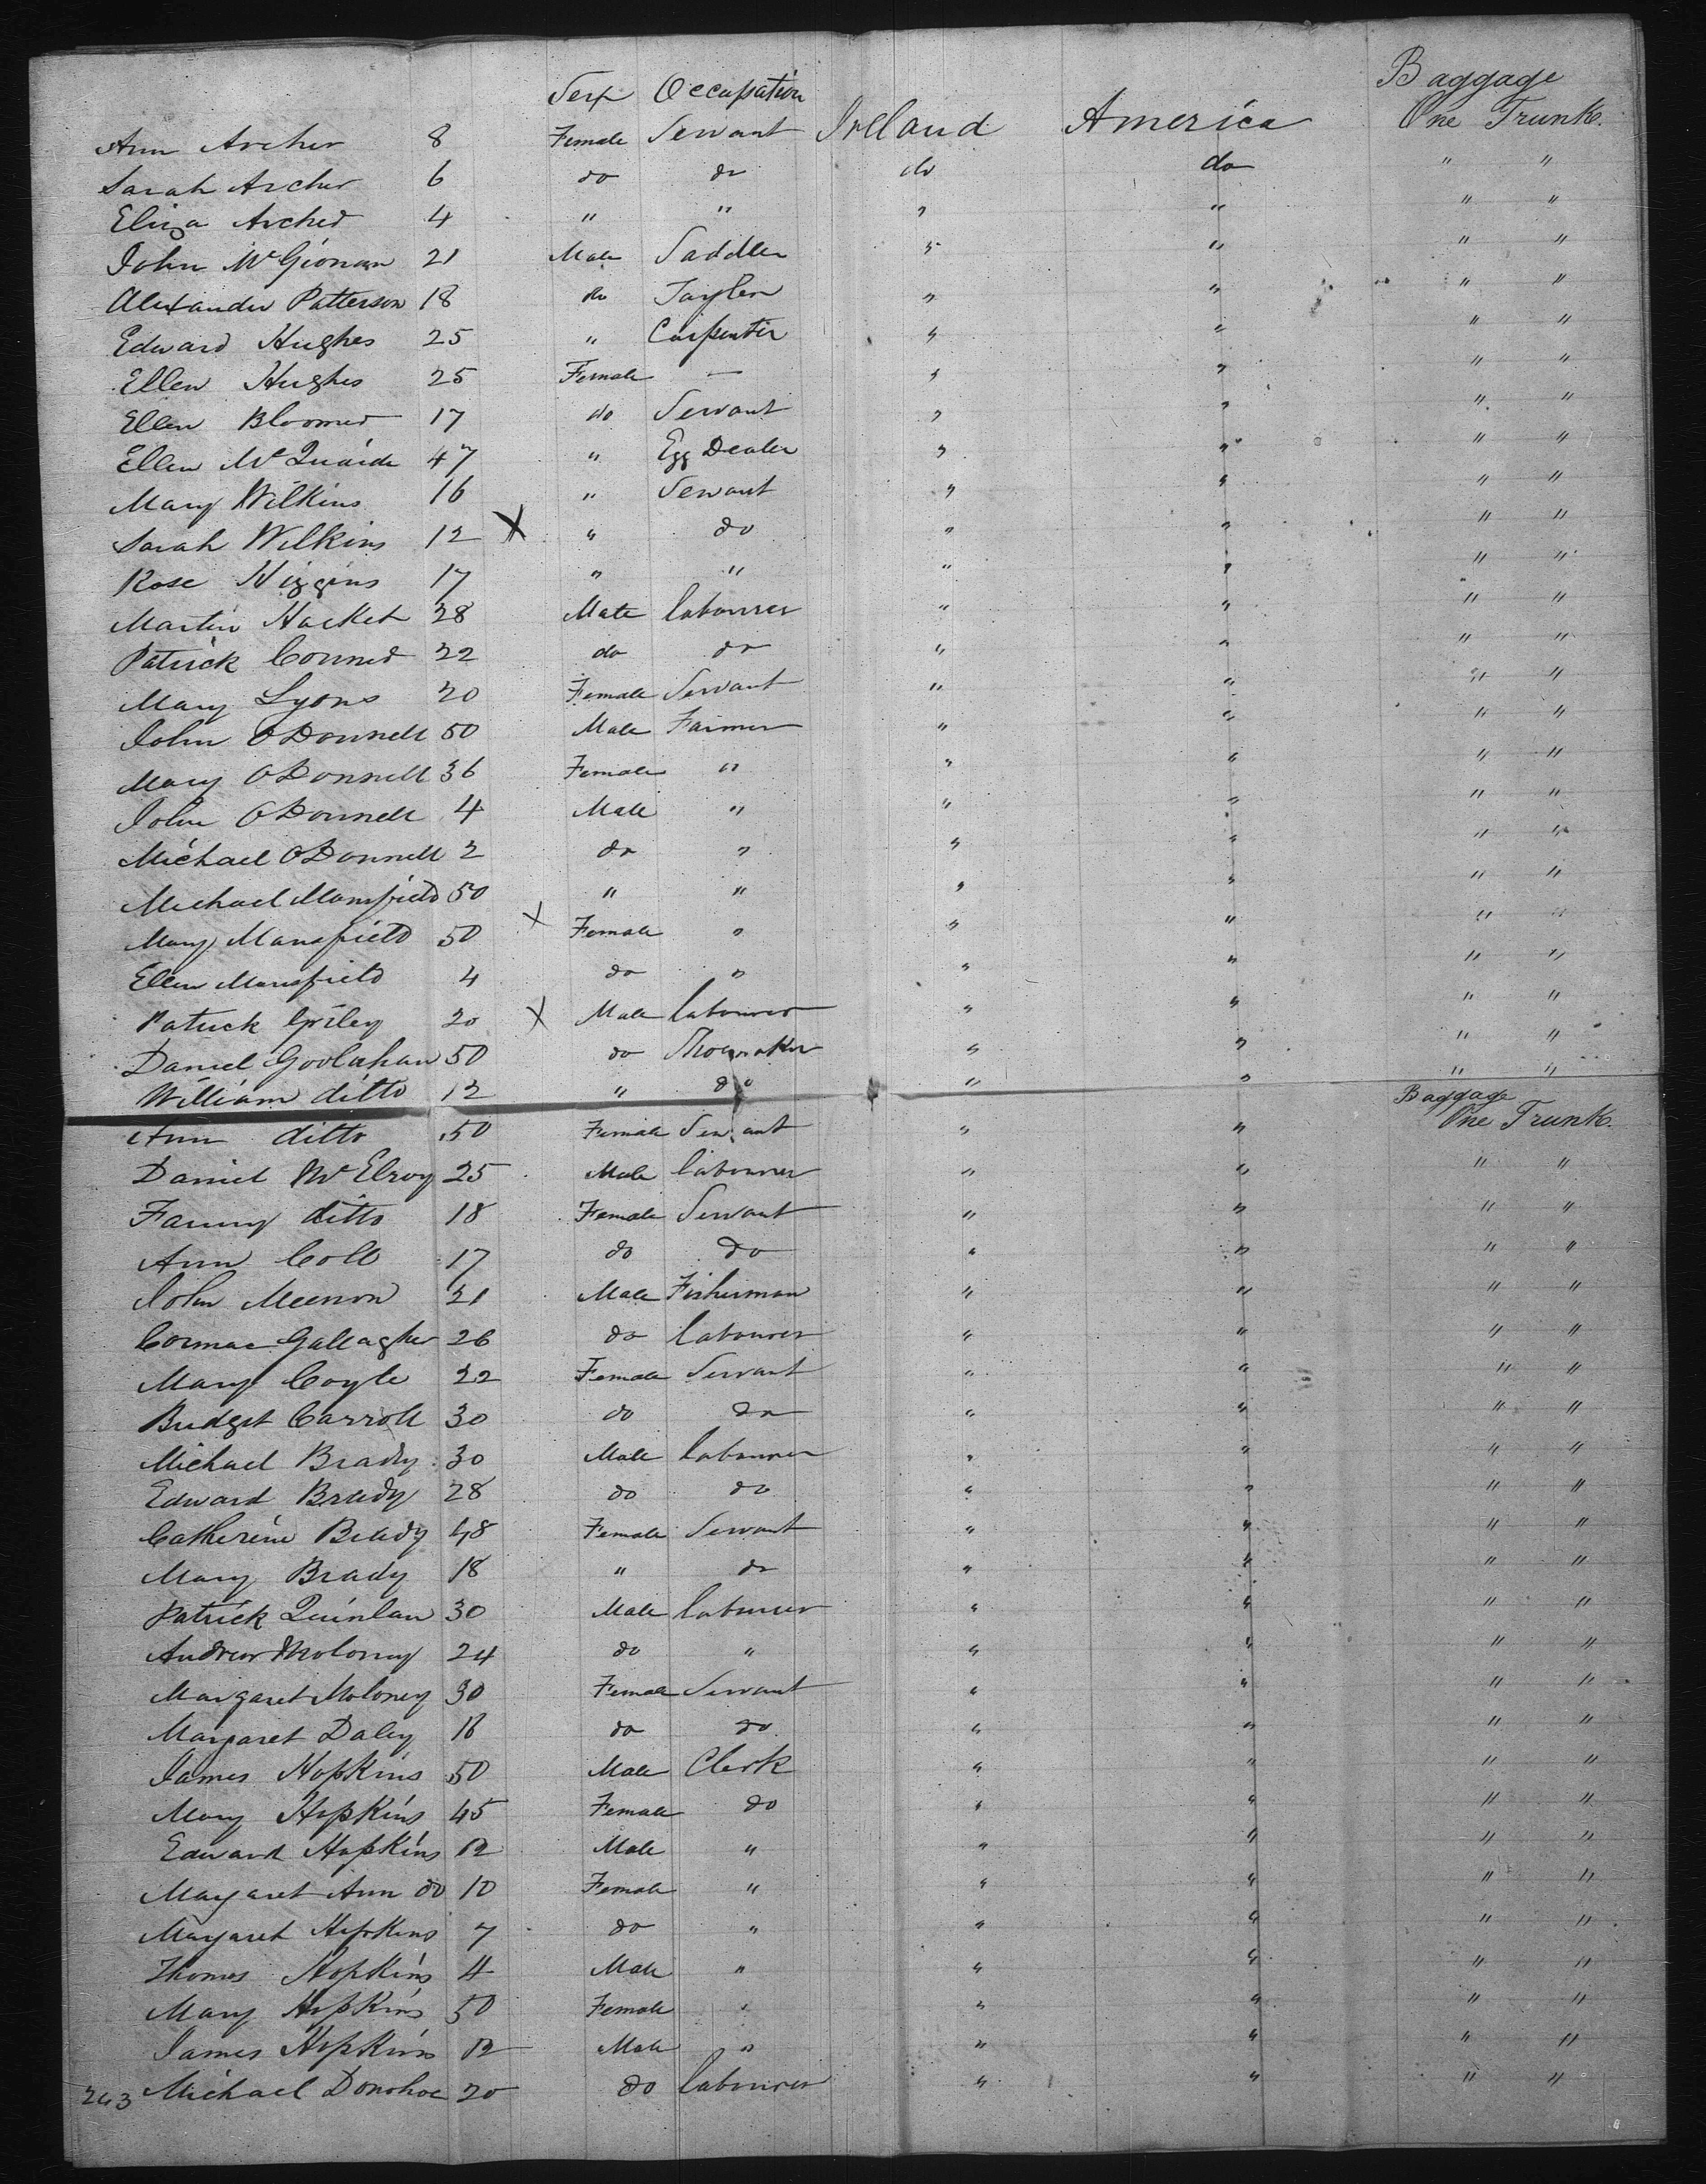 Baggage
Sex Occupation
Ann Archer 8 Female Servant Ireland America One Trunk.
Sarah Archer 6 do do do do " "
Eliza Archer 4 " " " " " "
John McGionan 21 Male Saddler " " " "
Alexander Patterson 18 do Taylor " " " "
Edward Hughes 25 " Carpenter " " " "
Ellen Hughes 25 Female — " " " "
Ellen Bloomer 17 do Servant " " " "
Ellen McQuaide 47 " Egg Dealer " " " "
Mary Wilkins 16 " Servant " " " "
Sarah Wilkins 12 X " do " " " "
Rose Higgins 17 " " " " " "
Martin Hacket 28 Male labourer " " " "
Patrick Conner 22 do do " " " "
Mary Lyons 20 Female Servant " " " "
John ODonnell 50 Male Farmer " " " "
Mary ODonnell 36 Female " " " " "
John ODonnell 4 Male " " " " "
Michael ODonnell 2 do " " " " "
Michael Mansfield 50 " " " " " "
Mary Mansfield 50 X Female " " " " "
Ellen Mansfield 4 do " " " " "
Patrick 20 X Male labourer " " " "
Daniel Goolahan 50 do Shoemaker " " " "
William ditto 12 " do " " " "
Baggage
Ann ditto 50 Female Servant " " One Trunk.
Daniel McElroy 25 Male labourer " " " "
Fanny ditto 18 Female Servant " " " "
Ann Coll 17 do do " " " "
John Meenon 21 Male Fisherman " " " "
Cormac Gallagher 26 do labourer " " " "
Mary Coyle 22 Female Servant " " " "
Bridget Carroll 30 do do " " " "
Michael Brady 30 Male labourer " " " "
Edward Brady 28 do do " " " "
Catherine Brady 48 Female Servant " " " "
Mary Brady 18 " do " " " "
Patrick Quinlan 30 Male labourer " " " "
Andrew Molony 24 do " " " " "
Margaret Moloney 30 Female Servant " " " "
Margaret Daley 16 do do " " " "
James Hopkins 50 Male Clerk " " " "
Mary Hopkins 45 Female do " " " "
Edward Hopkins 12 Male " " " " "
Margaret Ann do 10 Female " " " " "
Margaret Hopkins 7 do " " " " "
Thomas Hopkins 4 Male " " " " "
Mary Hopkins 50 Female " " " " "
James Hopkins 12 Male " " " " "
243 Michael Donohoe 20 do labourer " " " "